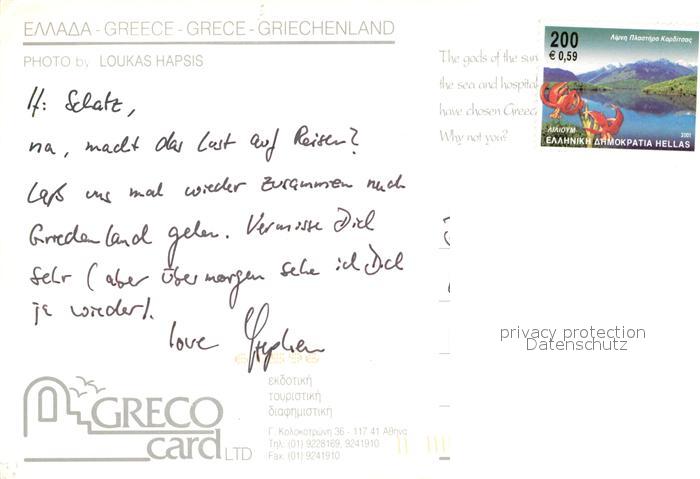 ΕΛΛΑΔΑ - GREECE - GRECE - GRIECHENLAND
PHOTO by LOUKAS HAPSIS
Hi Schatz,
na, macht das Lust auf Reisen?
Laß uns mal wieder zusammen nach
Griechenland gehen. Vermisse Dich
sehr (aber übermorgen sehe ich Dich
ja wieder).
love Stephen
The gods of the sun
the sea and hospital
have chosen Greec
Why not you?
200
€ 0,59
Λίμνη Πλαστήρα Καρδίτσας
ΛΙΛΙΟΥΜ
2001
ΕΛΛΗΝΙΚΗ ΔΗΜΟΚΡΑΤΙΑ HELLAS
privacy protection
Datenschutz
GRECO
card LTD
εκδοτική
τουριστική
διαφημιστική
Γ. Κολοκοτρώνη 36 - 117 41 Αθήνα
Τηλ: (01) 9228169, 9241910
Fax. (01) 9241910